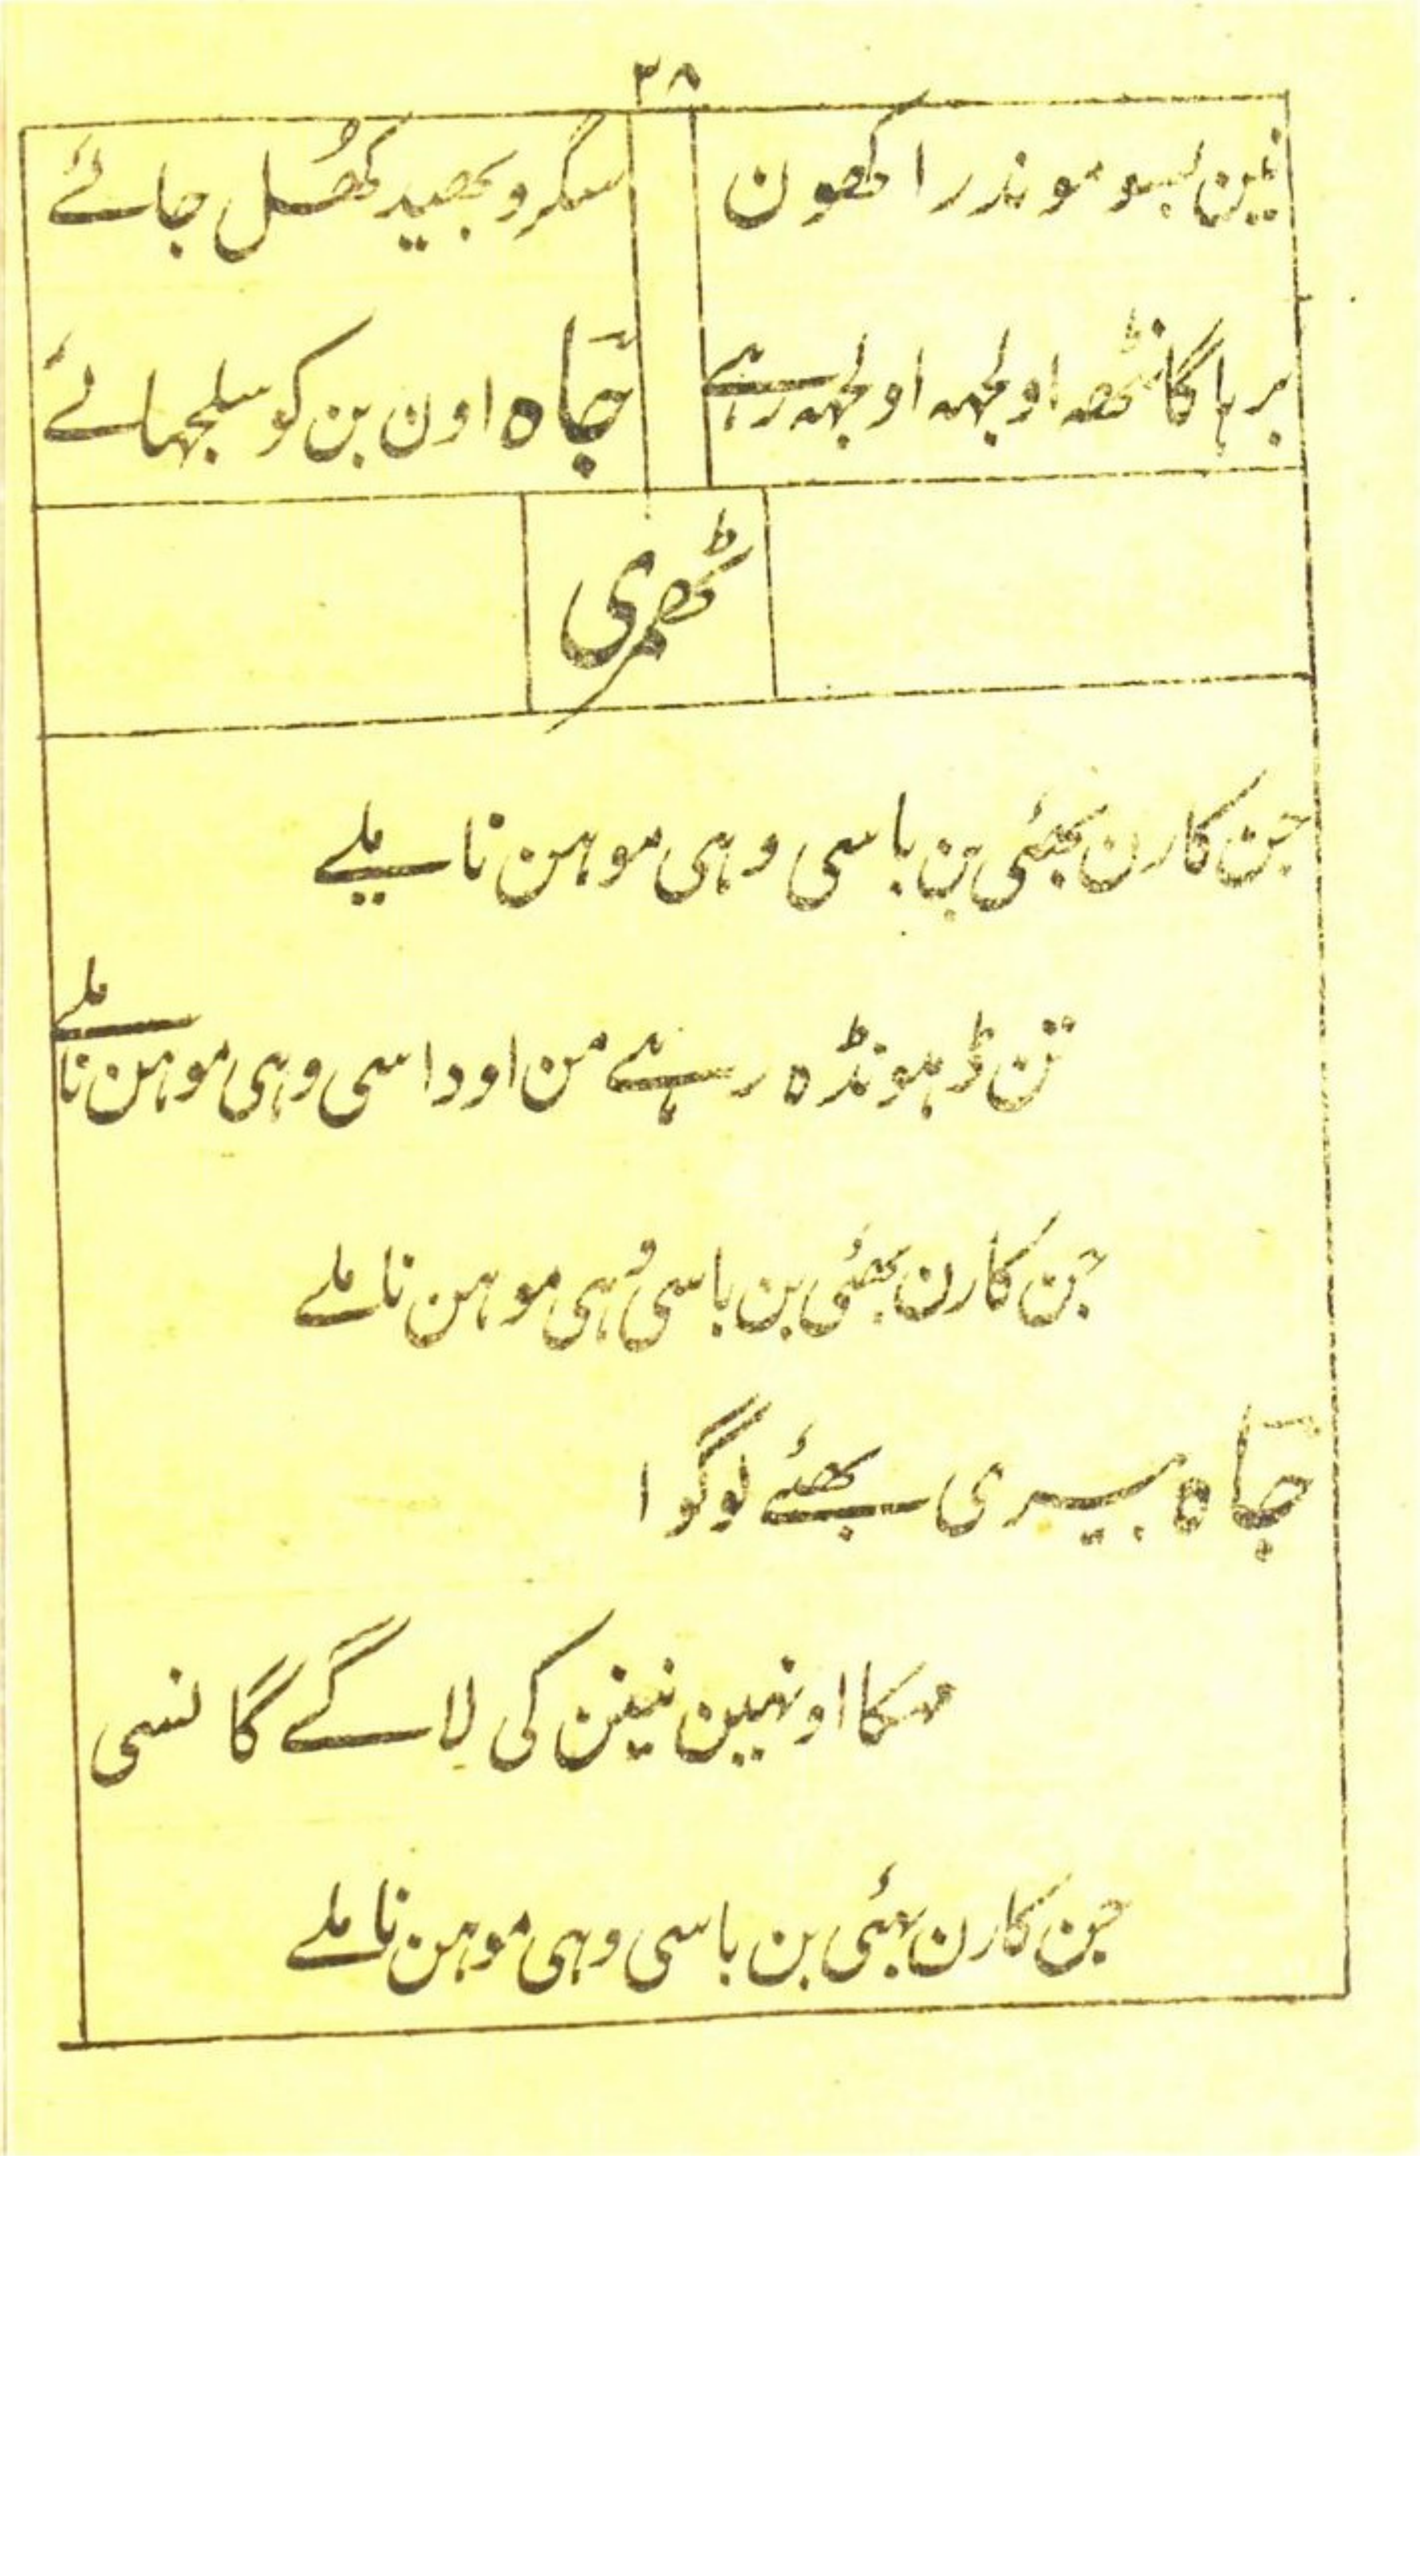 ۳۸
نین بسو موندر اکھون سگرو بھید کھُل جائے
برہا گانٹھ اولجہہ اولجہہ رہے چاہ اون بن کو سلجہائے
ٹھمری
جن کارن بھئی بن باسی وہی موہن نا ملے
تن ڈہونڈہ رہے من اوداسی وہی موہن نا ملے
جن کارن بھئی بن باسی وُہی موہن نا ملے
چاہ بیری بھئے لوگوا
مہکا اونہین نینن کی لاگے گانسی
جن کارن بھئی بن باسی وہی موہن نا ملے